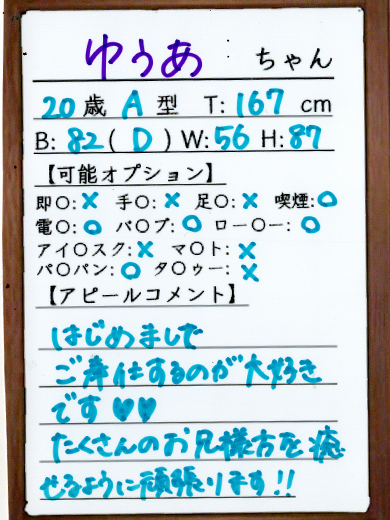 ゆうあ ちゃん
20歳 A型 T: 167 cm
B: 82(D) W:56 H:87
【可能オプション】
即〇:× 手〇:× 足〇:× 喫煙:○
電〇:○ バ〇ブ:○ ロー〇ー:○
アイ〇スク:× マ〇ト:×
パ〇パン:○ タ〇ゥー:×
【アピールコメント】
はじめまして
ご奉仕するのが大好き
です♥♥
たくさんのお兄様方を癒
せるように頑張ります!!